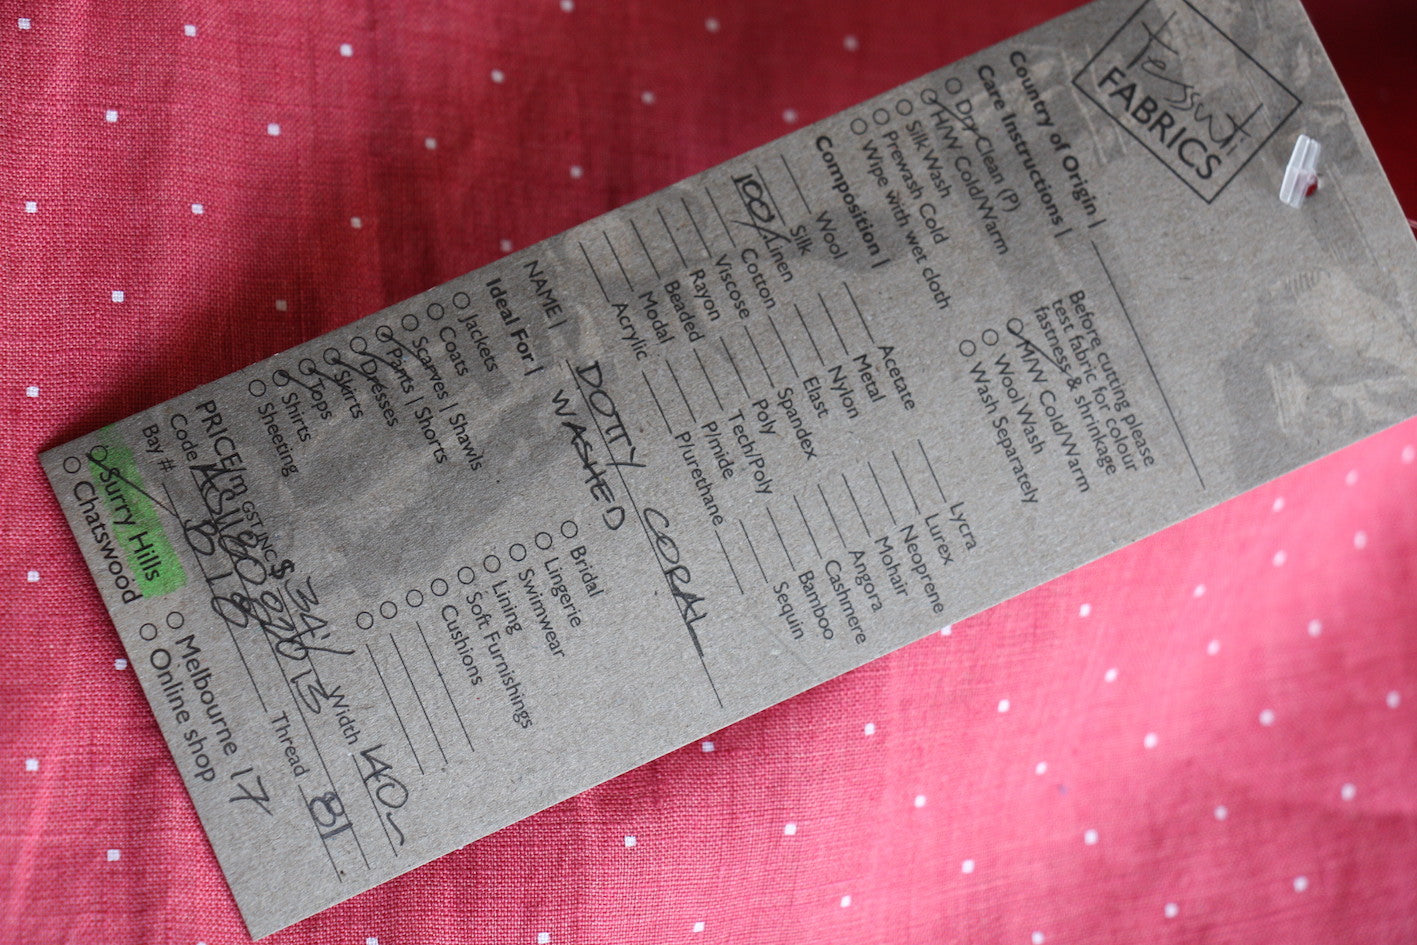 tessuti
FABRICS
Country of Origin |
Care Instructions |
Dry Clean (P)
H/W Cold/Warm
Silk Wash
Prewash Cold
Wipe with wet cloth
Before cutting please
test fabric for colour
fastness & shrinkage
M/W Cold/Warm
Wool Wash
Wash Separately
Composition |
Wool
Silk
100% Linen
Cotton
Viscose
Rayon
Beaded
Modal
Acrylic
Acetate
Metal
Nylon
Elast
Spandex
Poly
Tech/Poly
P/mide
P/urethane
Lycra
Lurex
Neoprene
Mohair
Angora
Cashmere
Bamboo
Sequin
NAME | DOTTY CORAL
WASHED
Ideal For |
Jackets
Coats
Scarves | Shawls
Pants | Shorts
Dresses
Skirts
Tops
Shirts
Sheeting
Bridal
Lingerie
Swimwear
Lining
Soft Furnishings
Cushions
PRICE/m GST INC $ 34 Width 140
Code
Bay # B 18 Thread 81
Surry Hills
Chatswood
Melbourne 17
Online shop